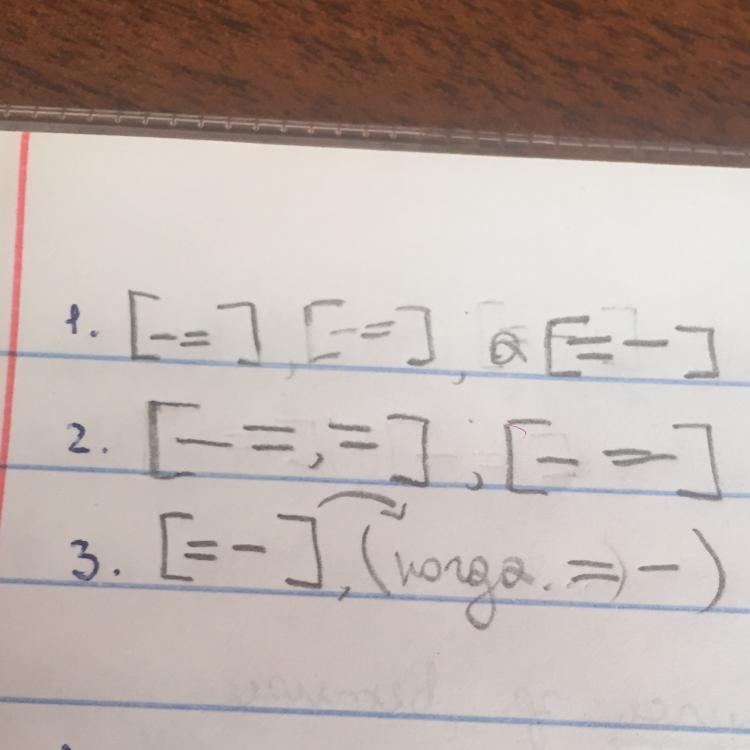 1. [– =], [– =], а [= –]
2. [– =, =], [– =]
3. [= –], (когда. = –)